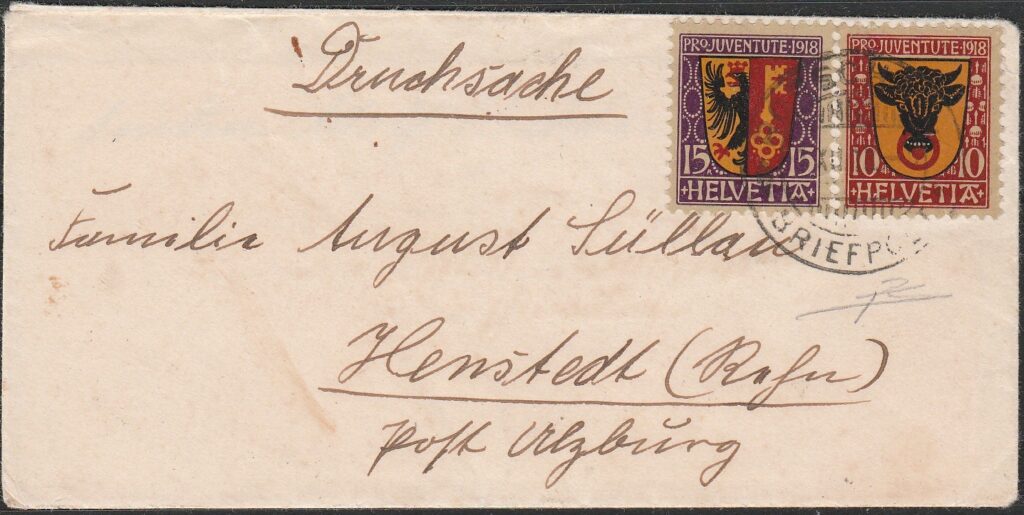 Drucksache
PRO JUVENTUTE·1918
15 15
+HELVETIA+
PRO JUVENTUTE·1918
10 10
+HELVETIA+
BRIEFPO
Familie August Süllau
Henstedt (Rahn)
Post Ulzburg